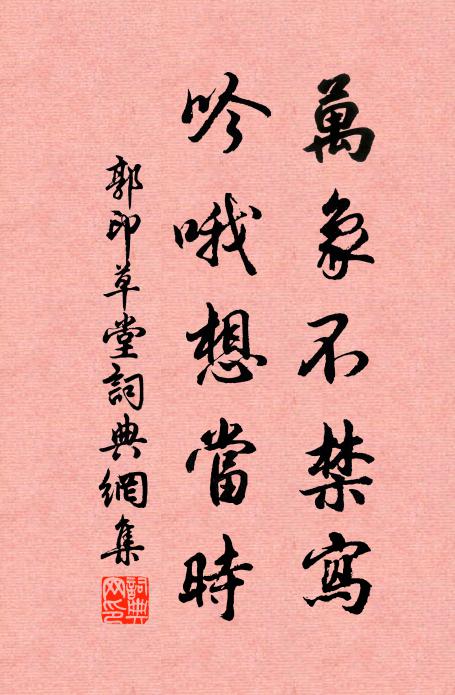 萬象不禁寫
吟哦想當時
郭印草堂詞典網集
詞典網印